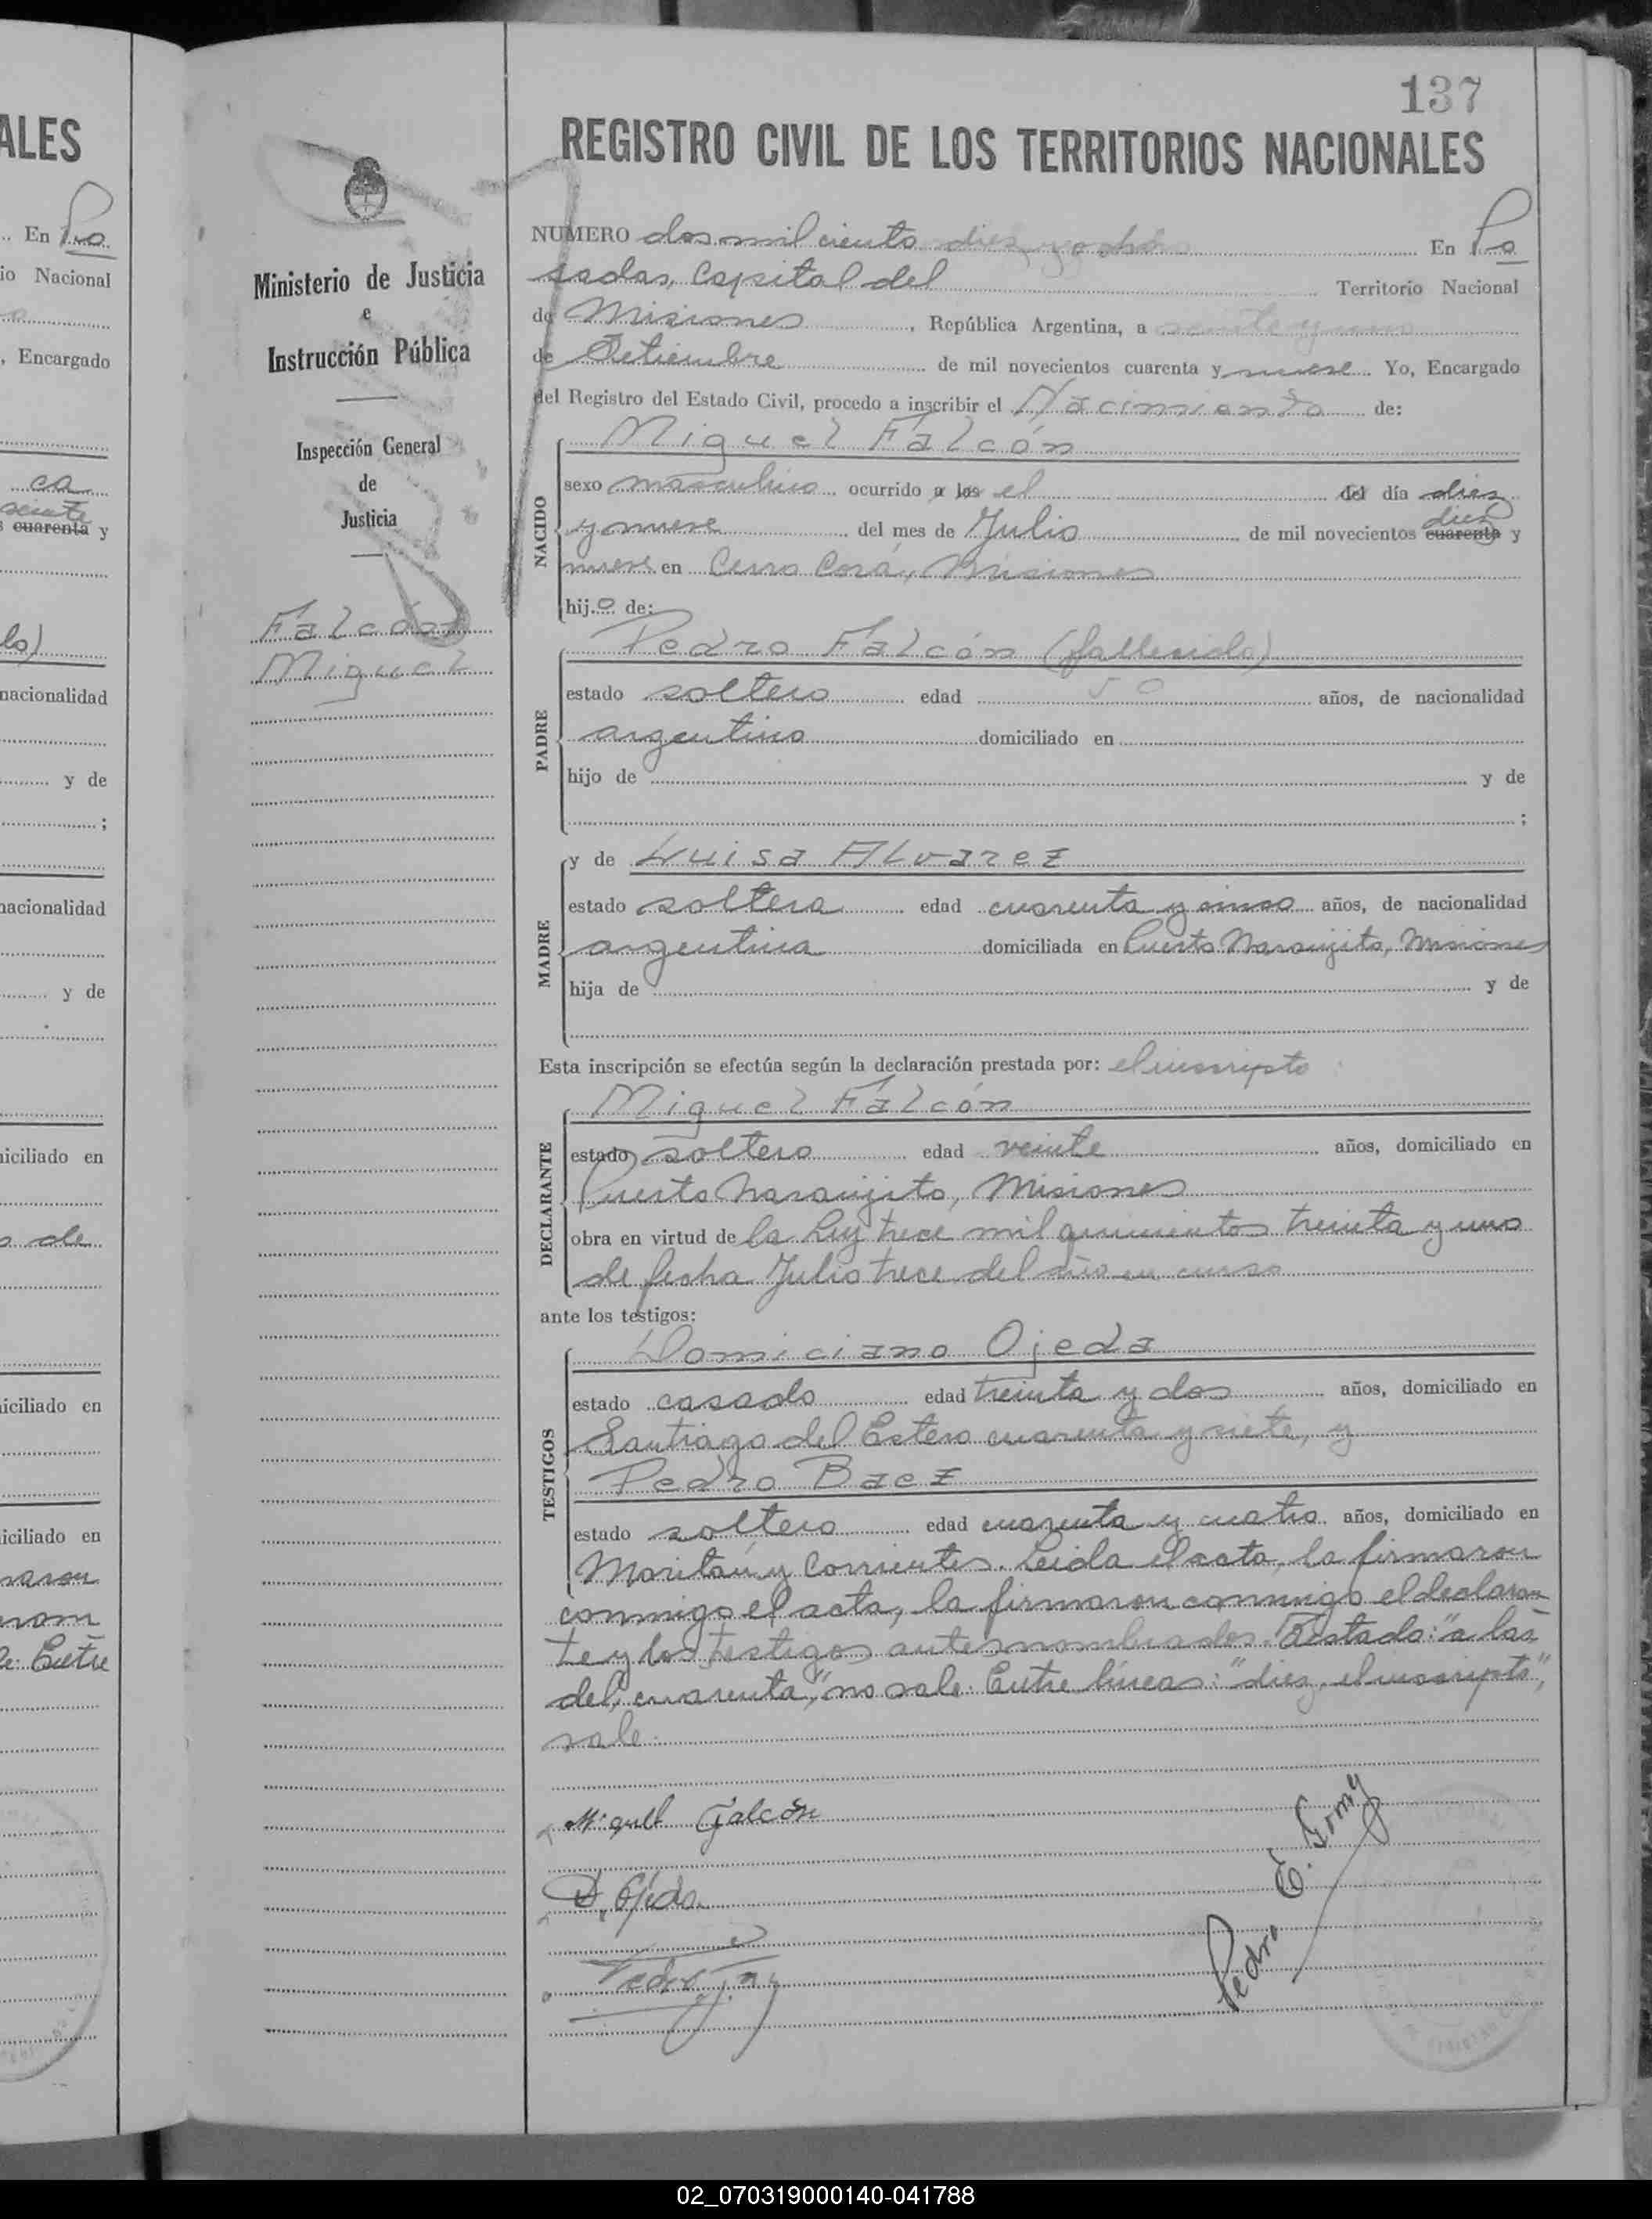 137
ALES
REGISTRO CIVIL DE LOS TERRITORIOS NACIONALES
En Po
io Nacional
, Encargado
ca
siete
cuarenta y
lo)
nacionalidad
y de
;
nacionalidad
y de
iciliado en
o de
iciliado en
iciliado en
naron
nom
Entre
Ministerio de Justicia
e
Instrucción Pública
Inspección General
de
Justicia
Falcón
Miguel
NUMERO dos mil ciento diez y ocho En Po
sadas, Capital del Territorio Nacional
de Misiones, República Argentina, a veinte y uno
de Setiembre de mil novecientos cuarenta y nueve. Yo, Encargado
del Registro del Estado Civil, procedo a inscribir el Nacimiento de:
NACIDO
Miguel Falcón
sexo masculino ocurrido a las el del día diez
y nueve del mes de Julio de mil novecientos cuarenta diez y
nueve en Cerro Corá, Misiones
hijo de:
PADRE
Pedro Falcón (fallecido)
estado soltero edad 50 años, de nacionalidad
argentino domiciliado en
hijo de y de
;
MADRE
y de Luisa Alvarez
estado soltera edad cuarenta y cinco años, de nacionalidad
argentina domiciliada en Puerto Naranjito, Misiones
hija de y de
Esta inscripción se efectúa según la declaración prestada por: el inscripto
DECLARANTE
Miguel Falcón
estado soltero edad veinte años, domiciliado en
Puerto Naranjito, Misiones
obra en virtud de la Ley trece mil quinientos treinta y uno
de fecha Julio trece del año en curso
ante los testigos:
TESTIGOS
Domiciano Ojeda
estado casado edad treinta y dos años, domiciliado en
Santiago del Estero cuarenta y siete, y
Pedro Baez
estado soltero edad cuarenta y cuatro años, domiciliado en
Moritán y Corrientes. Leida el acta, la firmaron
conmigo el acta, la firmaron conmigo el declaran
te y los testigos antesnombrados. Testado: "a las
del, cuarenta," no vale. Entre líneas: "diez, el inscripto",
vale.
Miguel Falcón
D. Ojeda
Pedro E. Gomy
02_070319000140-041788